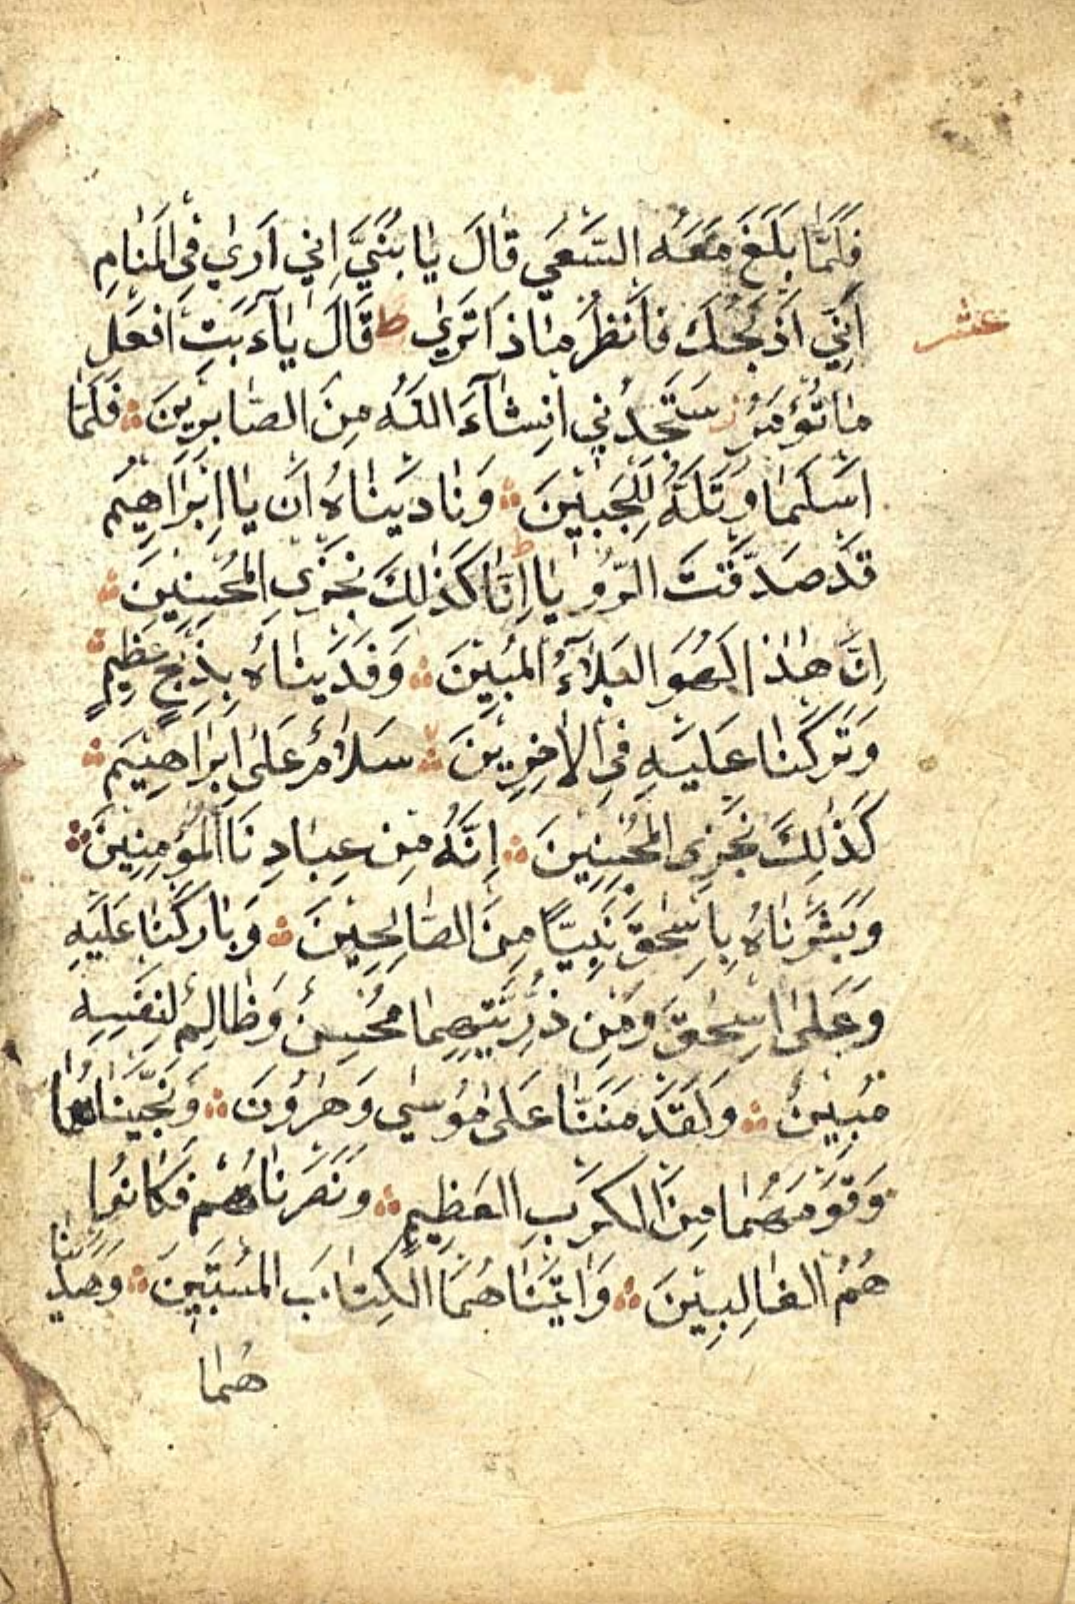 فَلَمَّا بَلَغَ مَعَهُ السَّعْيَ قَالَ يَا بُنَيَّ اِنِّي اَرٰي فِى الْمَنَامِ
اَنِّي اَذْبَحُكَ فَانْظُرْ مَاذَا تَرٰي ط قَالَ يَا اَبَتِ افْعَلْ
عشر
مَا تُؤْمَرُ ز سَتَجِدُنِي اِنْشَآءَ اللهُ مِنَ الصَّابِرِينَ ۞ فَلَمَّا
اَسْلَمَا وَتَلَّهُ لِلْجَبِيْنَ ۞ وَنَادَيْنَاهُ اَنْ يَا اِبْرَاهِيْمُ
قَدْ صَدَّقْتَ الرُّوْيَا ط اِنَّا كَذٰلِكَ نَجْزِي الْمُحْسِنِينَ ۞
اِنَّ هٰذَا لَهُوَ الْبَلٰٓؤُا الْمُبِيْنَ ۞ وَفَدَيْنَاهُ بِذِبْحٍ عَظِيْمٍ ۞
وَتَرَكْنَا عَلَيْهِ فِى الْاٰخِرِيْنَ ۞ سَلَامٌ عَلٰى اِبْرَاهِيْمَ ۞
كَذٰلِكَ نَجْزِى الْمُحْسِنِينَ ۞ اِنَّهُ مِنْ عِبَادِنَا الْمُؤْمِنِينَ ۞
وَبَشَّرْنَاهُ بِاِسْحٰقَ نَبِيًّا مِنَ الصَّالِحِيْنَ ۞ وَبَارَكْنَا عَلَيْهِ
وَعَلٰى اِسْحٰقَ وَمِنْ ذُرِّيَّتِهِمَا مُحْسِنٌ وَظَالِمٌ لِنَفْسِهِ
مُبِيْنٌ ۞ وَلَقَدْ مَنَنَّا عَلٰى مُوْسٰي وَهٰرُونَ ۞ وَنَجَّيْنَاهُمَا
وَقَوْمَهُمَا مِنَ الْكَرْبِ الْعَظِيْمِ ۞ وَنَصَرْنَاهُمْ فَكَانُوا
هُمُ الْغَالِبِيْنَ ۞ وَاٰتَيْنَاهُمَا الْكِتَابَ الْمُسْتَبِيْنَ ۞ وَهَدَيْنَا
هُمَا